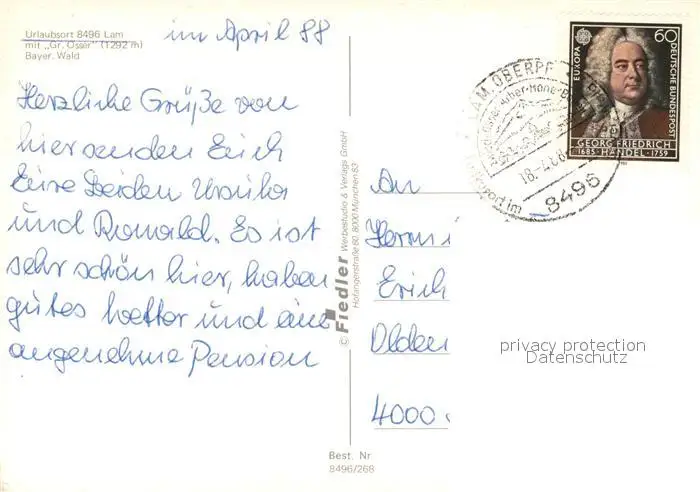 Urlaubsort 8496 Lam
mit „Gr. Osser" (1292 m)
Bayer. Wald
im April 88
Herzliche Grüße von
hier senden Euch
Eure beiden Ursula
und Romald. Es ist
sehr schön hier, haben
gutes Wetter und eine
angenehme Pension
© Fiedler Werbestudio & Verlags GmbH
Hofangerstraße 60, 8000 München 83
Best. Nr
8496/268
EUROPA
60
DEUTSCHE BUNDESPOST
GEORG FRIEDRICH
1685 HÄNDEL 1759
LAM, OBERPF
18.-4.88
8496
An
Herrn
Erich
4000
privacy protection
Datenschutz